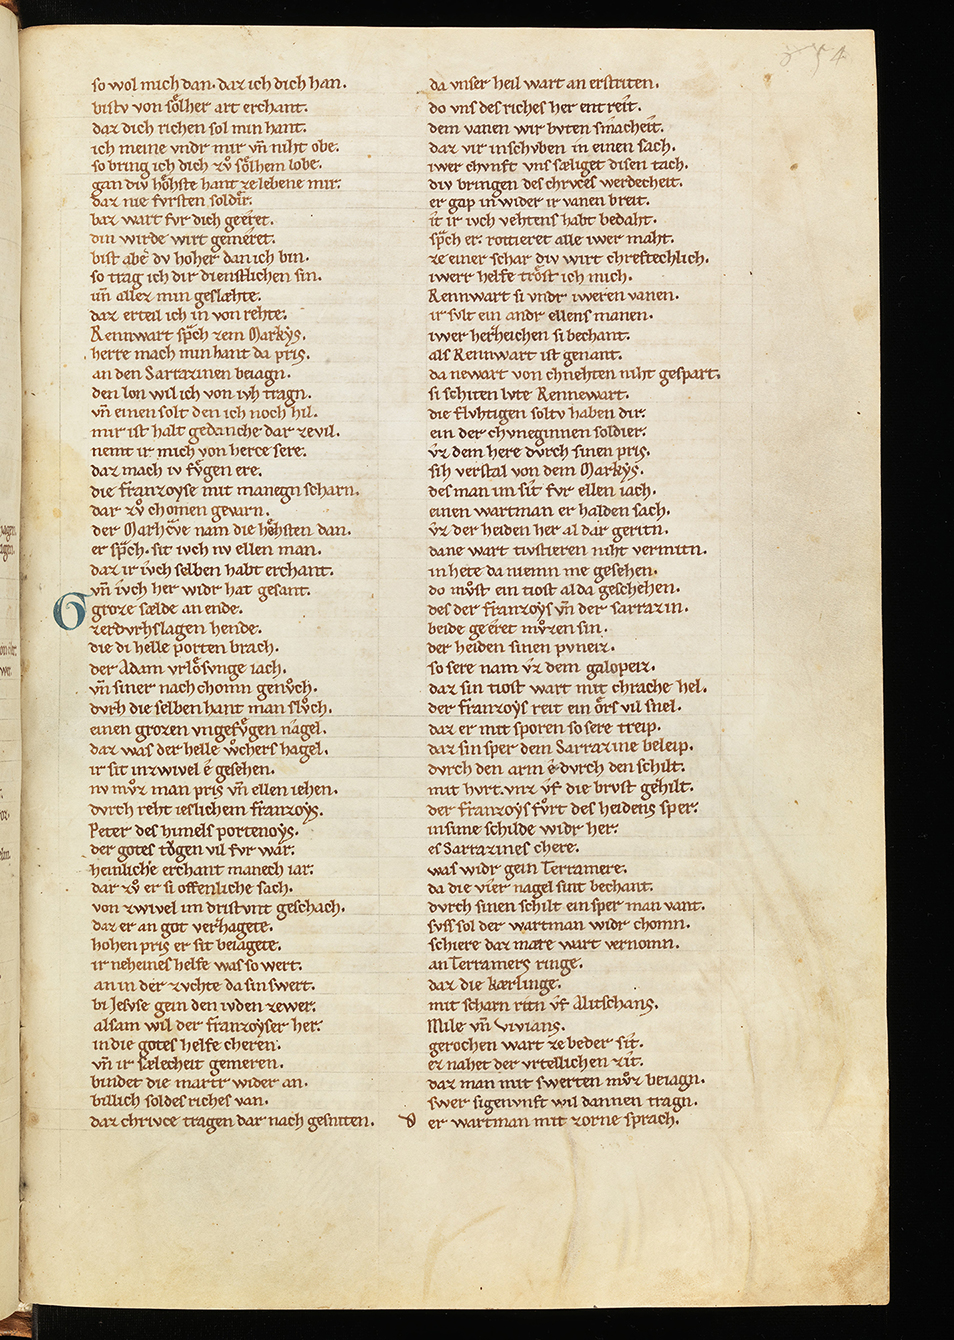 so wol mich dan. daz ich dich han.
bistv von soͤlher art erchant.
daz dich richen sol min hant.
ich meine vndr mir vn̄ niht obe.
so bring ich dich zvͦ soͤlhem lobe.
gan div hoͤhste hant ze lebene mir.
daz nie fvrsten soldir.
baz wart fvr dich geeret.
din wirde wirt gemeret.
bist aber dv hoher dan ich bin.
so trag ich dir dienstlichen sin.
vn̄ allez min geslæhte.
daz erteil ich in von rehte.
Rennwart spͣch zem Markys.
herre mach min hant da pris.
an den Sarrazinen beiagn.
den lon wil ich von ivh tragn.
vn̄ einen solt den ich noch hil.
mir ist halt gedanche dar zevil.
nemt ir mich von herce sere.
daz mach iv fvͤgen ere.
die franzoyse mit manegn scharn.
dar zvͦ chomen gevarn.
der Marhcͣve nam die hoͤhsten dan.
er spͣch. sit ivch nv ellen man.
daz ir ivch selben habt erchant.
vn̄ ivch her widr hat gesant.
Groze sælde an ende.
zerdvrhslagen hende.
die di helle porten brach.
der Adam vrloͤsvnge iach.
vn̄ siner nach chomn genvͦch.
dvrh die selben hant man slvͦch.
einen grozen vngefvͤgen nagel.
daz was der helle wͦchers hagel.
ir sit inzwivel e gesehen.
nv mvͦz man pris vn̄ ellen iehen.
dvrch reht ieslichem franzoys.
Peter des himels portenoys.
der gotes toͮgen vil fvr war.
heinliche erchant manech iar.
dar zvͦ er si offenliche sach.
von zwivel im dristvnt geschach.
daz er an got verzhagete.
hohen pris er sit beiagete.
ir neheines helfe was so wert.
an in der zvchte da sin swert.
bi Jesvse gein den ivden zewer.
alsam wil der franzoyser her.
in die gotes helfe cheren.
vn̄ ir sælecheit gemeren.
bindet die martr wider an.
billich soldes riches van.
daz chrivce tragen dar nach gesniten.
da vnser heil wart an erstriten.
do vns des riches her entreit.
dem vanen wir bvten smacheit.
daz vir inschvben in einen sach.
iwer chvnft vns sæliget disen tach.
div bringen des chrvces werdecheit.
er gap in wider ir vanen breit.
it ir ivch vehtens habt bedaht.
spͣch er. rottieret alle iwer maht.
ze einer schar div wirt chreftechlich.
iwerr helfe troͤst ich mich.
Rennwart si vndr iweren vanen.
ir svlt ein andr ellens manen.
iwer herzheichen si bechant.
als Rennwart ist genant.
da newart von chnehten niht gespart.
si schriten lvte Rennewart.
die flvhtigen soltv haben dir.
ein der chvneginnen soldier.
vͤz dem here dvrch sinen pris.
sih verstal von dem Markys.
des man im sit fvr ellen iach.
einen wartman er halden sach.
vͤz der heiden her al dar geritn.
dane wart tivstieren niht vermitn.
in hete da niemn me gesehen.
do mvͦst ein tiost alda geschehen.
des der franzoys vn̄ der sarrazin.
beide geeret mvͤzen sin.
der heiden sinen pvneiz.
so sere nam vͤz dem galopeiz.
daz sin tiost wart mit chrache hel.
der franzoys reit ein oͤrs vil snel.
daz er mit sporen so sere treip.
daz sin sper dem Sarrazine beleip.
dvrch den arm e dvrch den schilt.
mit hvrt. vnz vͤf die brvst gezhilt.
der franzoys fvͦrt des heidens sper.
in sime schilde widr her.
es Sarrazines chere.
was widr gein Terramere.
da die vier nagel sint bechant.
dvrch sinen schilt ein sper man vant.
svss sol der wartman widr chomn.
schiere daz mære wart vernomn.
an Terramers ringe.
daz die Kærlinge.
mit scharn ritn vͤf Alitschans.
Mile vn̄ Vivians.
gerochen wart ze beder sit.
ez nahet der vrteilichen zit.
daz man mit swerten mvͦz beiagn.
swer sigenvnft wil dannen tragn.
Der wartman mit zorne sprach.